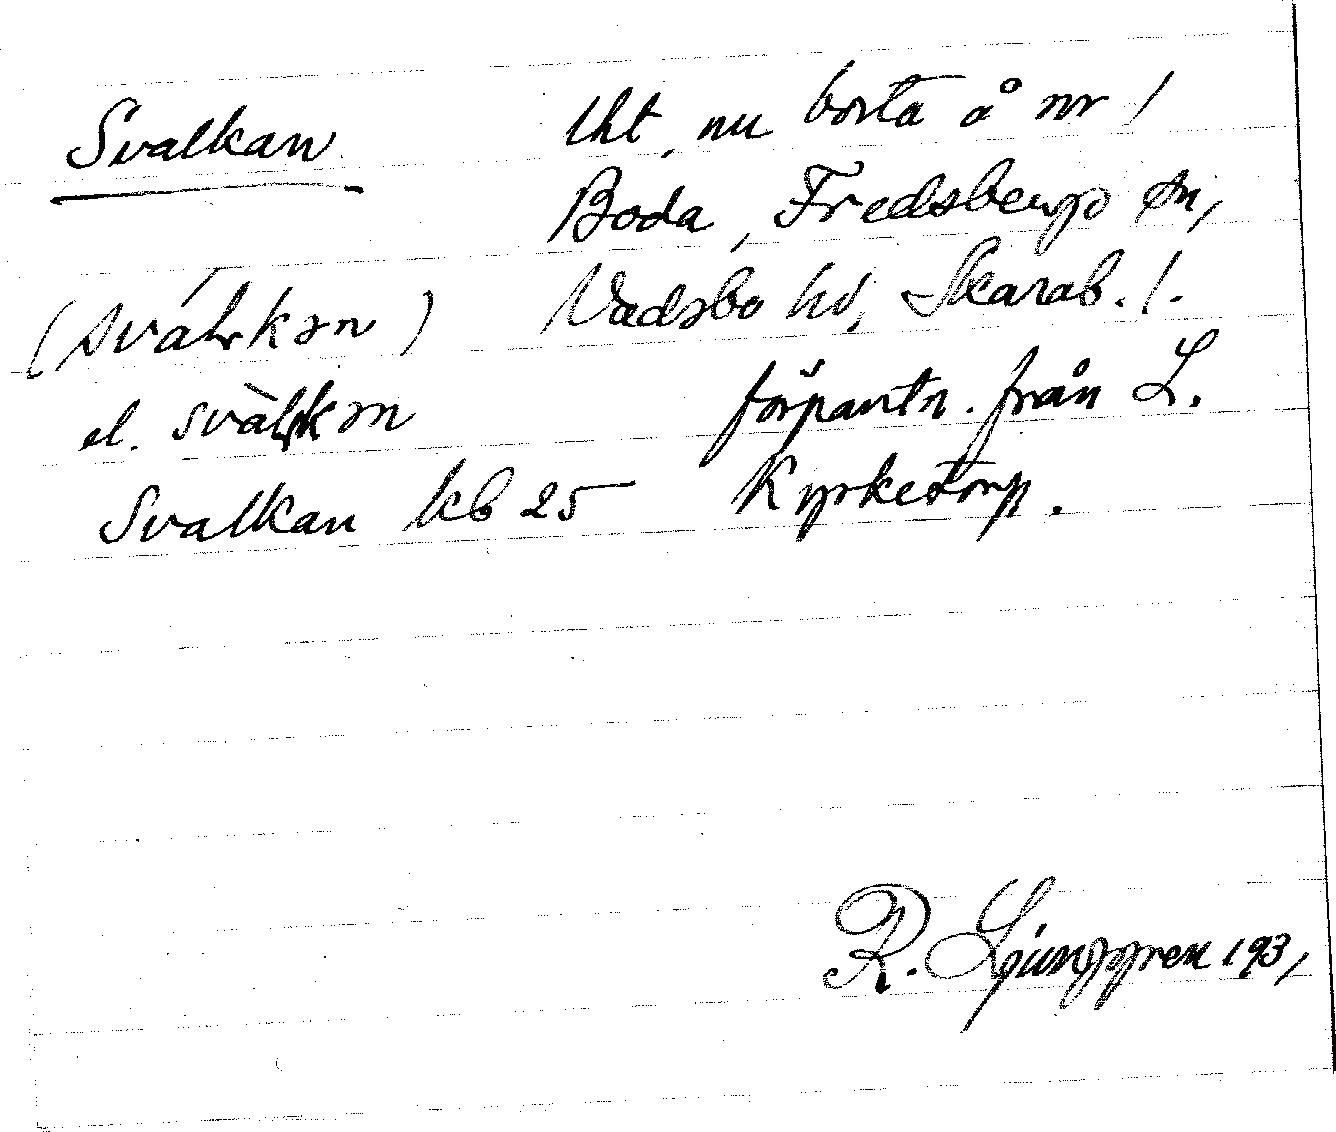 Svalkan lht, nu borta å nr 1
Boda, Fredsbergs sn,
(sválkən) Vadsbo hd, Skarab. l.
el. svàlkən förpantn. från L.
Svalkan kb 25 Kyrketorp.
R. Ljunggren 1931